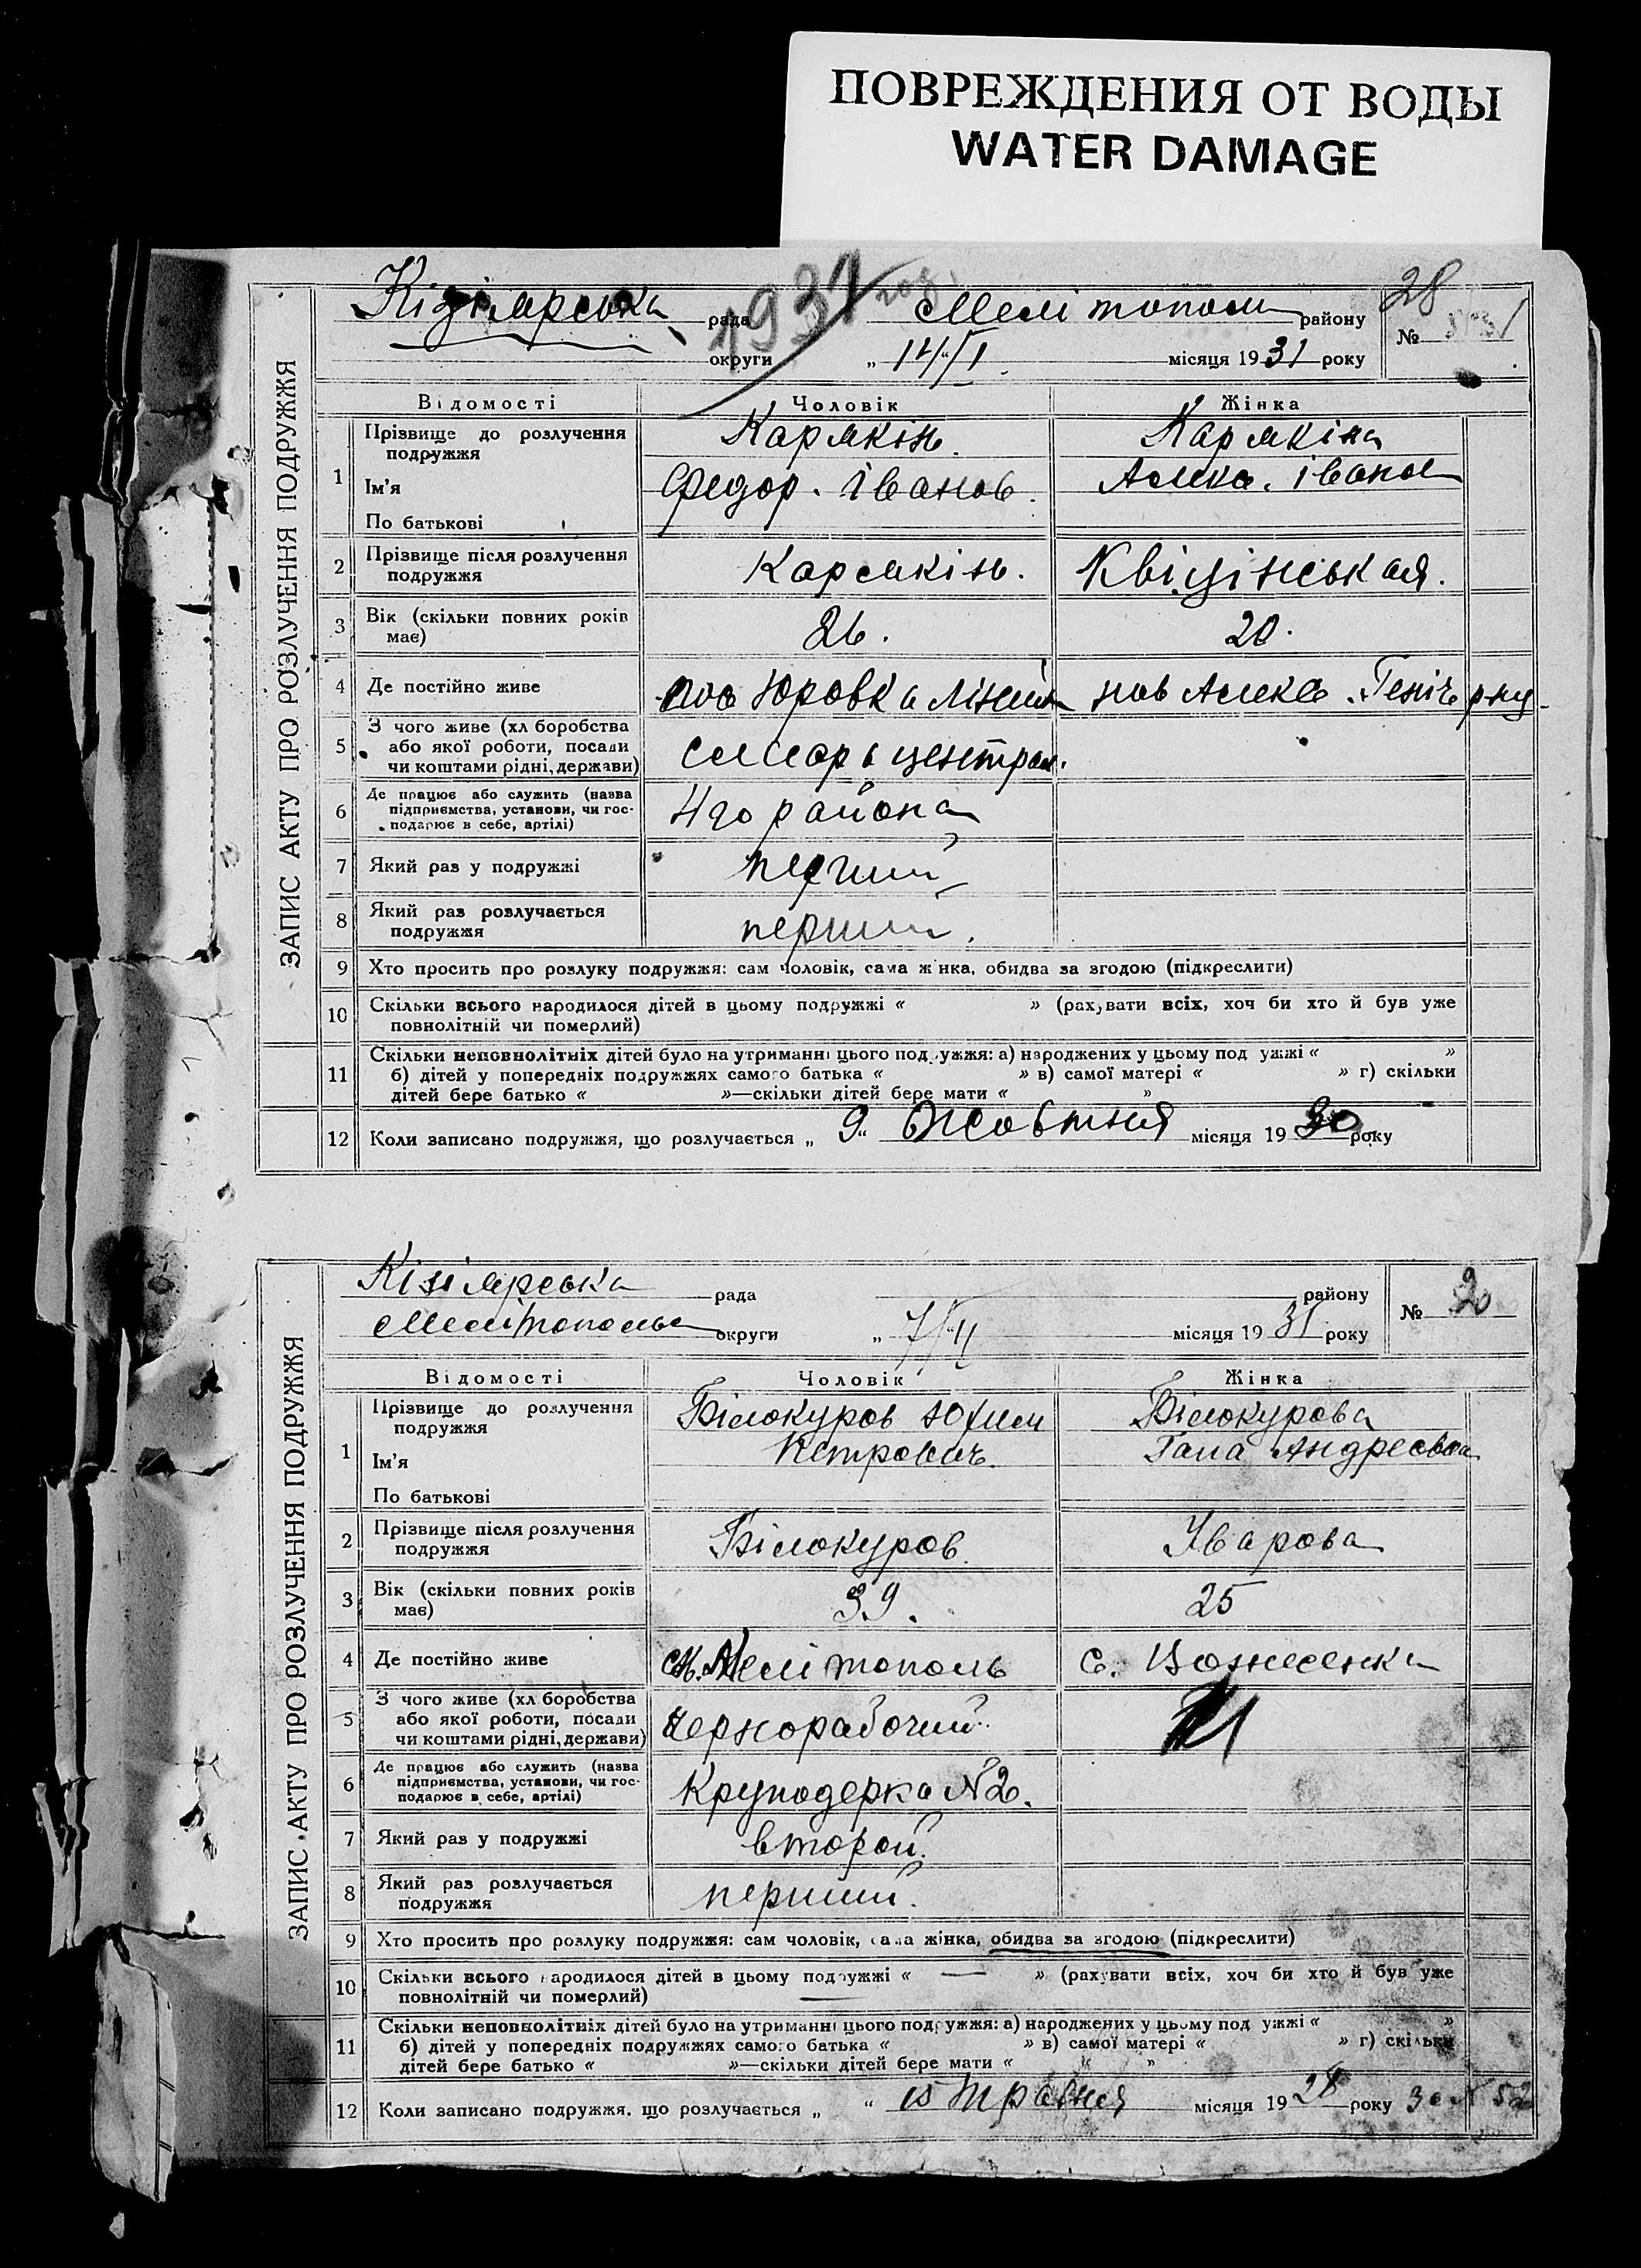 ПОВРЕЖДЕНИЯ ОТ ВОДЫ
WATER DAMAGE
1931 год.
28
Кізіярська рада Мелітополь району №
округи „ 14/I місяця 1931 року
ЗАПИС АКТУ ПРО РОЗЛУЧЕННЯ ПОДРУЖЖЯ
Відомості Чоловік Жінка
1 Прізвище до розлучення подружжя Кармкінь. Кармкіна
Ім'я Федор. Іванов. Алекс. Іванов
По батькові
2 Прізвище після розлучення подружжя Кармкінь. Квіцінськая.
3 Вік (скільки повних років має) 26. 20.
4 Де постійно живе пос Юровка Ліній нов Алекс. Геніч рну
5 З чого живе (хл боробства або якої роботи, посади чи коштами рідні, держави) слесарь централ.
6 Де працює або служить (назва підприємства, установи, чи господарює в себе, артілі) 4го района
7 Який раз у подружжі перший
8 Який раз розлучається подружжя перший.
9 Хто просить про розлуку подружжя: сам чоловік, сама жінка, обидва за згодою (підкреслити)
10 Скільки всього народилося дітей в цьому подружжі « » (рахувати всіх, хоч би хто й був уже
повнолітній чи померлий)
11 Скільки неповнолітніх дітей було на утриманні цього подружжя: а) народжених у цьому подружжі « »
б) дітей у попередніх подружжях самого батька « » в) самої матері « » г) скільки
дітей бере батько « »—скільки дітей бере мати « »
12 Коли записано подружжя, що розлучається „ 9 “ Жовтня місяця 1930 року
Кізіярська рада району № 2
Мелітопольс округи „ 7/II місяця 1931 року
ЗАПИС АКТУ ПРО РОЗЛУЧЕННЯ ПОДРУЖЖЯ
Відомості Чоловік Жінка
1 Прізвище до розлучення подружжя Білокуров Юхим Білокурова
Ім'я Петрович. Гапа Андреевна
По батькові
2 Прізвище після розлучення подружжя Білокуров. Уварова
3 Вік (скільки повних років має) 39. 25
4 Де постійно живе м. Мелітополь с. Вознесенка
5 З чого живе (хл боробства або якої роботи, посади чи коштами рідні, держави) чернорабочий.
6 Де працює або служить (назва підприємства, установи, чи господарює в себе, артілі) Круподерка №2.
7 Який раз у подружжі второй.
8 Який раз розлучається подружжя перший.
9 Хто просить про розлуку подружжя: сам чоловік, сама жінка, обидва за згодою (підкреслити)
10 Скільки всього народилося дітей в цьому подружжі « — » (рахувати всіх, хоч би хто й був уже
повнолітній чи померлий)
11 Скільки неповнолітніх дітей було на утриманні цього подружжя: а) народжених у цьому подружжі « »
б) дітей у попередніх подружжях самого батька « » в) самої матері « » г) скільки
дітей бере батько « »—скільки дітей бере мати « »
12 Коли записано подружжя, що розлучається „ “ 15 травня місяця 1928 року за № 52